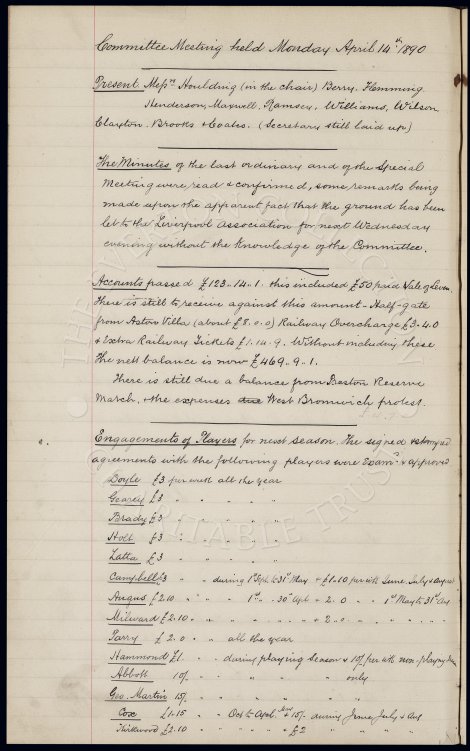 Committee Meeting held Monday April 14th 1890
Present. Messrs Houlding (in the chair) Berry. Flemming.
Henderson, Maxwell, Ramsey, Williams, Wilson,
Claxton. Brooks + Coates. (Secretary still laid up)
The Minutes of the last ordinary and of the Special
Meeting were read & confirmed, some remarks being
made upon the apparent fact that the ground has been
let to the Liverpool Association for next Wednesday
evening without the knowledge of the Committee.
Accounts passed £123.14.1 this included £50 paid Vale of Leven.
There is still to receive against this amount - Half-gate
from Aston Villa (about £8.0.0) Railway Overcharge £3.4.0
& Extra Railway Tickets £1.14.9. Without including these
the nett balance is now £469.9.1.
There is still due a balance from Preston Reserve
March, & the expenses due West Bromwich protest.
Engagements of Players for next season. The signed & stamped
agreements with the following players were Examd & approved
Doyle £3 per week all the year
Geary £3 " " " "
Brady £3 " " " "
Holt £3 " " " "
Latta £3 " " " "
Campbell £3 " " during 1st Sept to 31st May + £1-10 per wk June July & August
Angus £2.10 " " " 1st " 30th Apl + 2.0 " " 1st May to 31st Aug
Milward £2.10 " " " " " " + 2.0 " " " "
Parry £2.0 " " all the year
Hammond £1 " " during playing season & 10/ per wk non-playing
Abbott 10/ " " " " " only
Geo. Martin 15/ " " " "
Cox £1.15 " " Oct to Apl. + 15/- during June, July & Aug
Kirkwood £2.10 " " " " £2 " " "
THE EVERTON
CHARITABLE TRUST